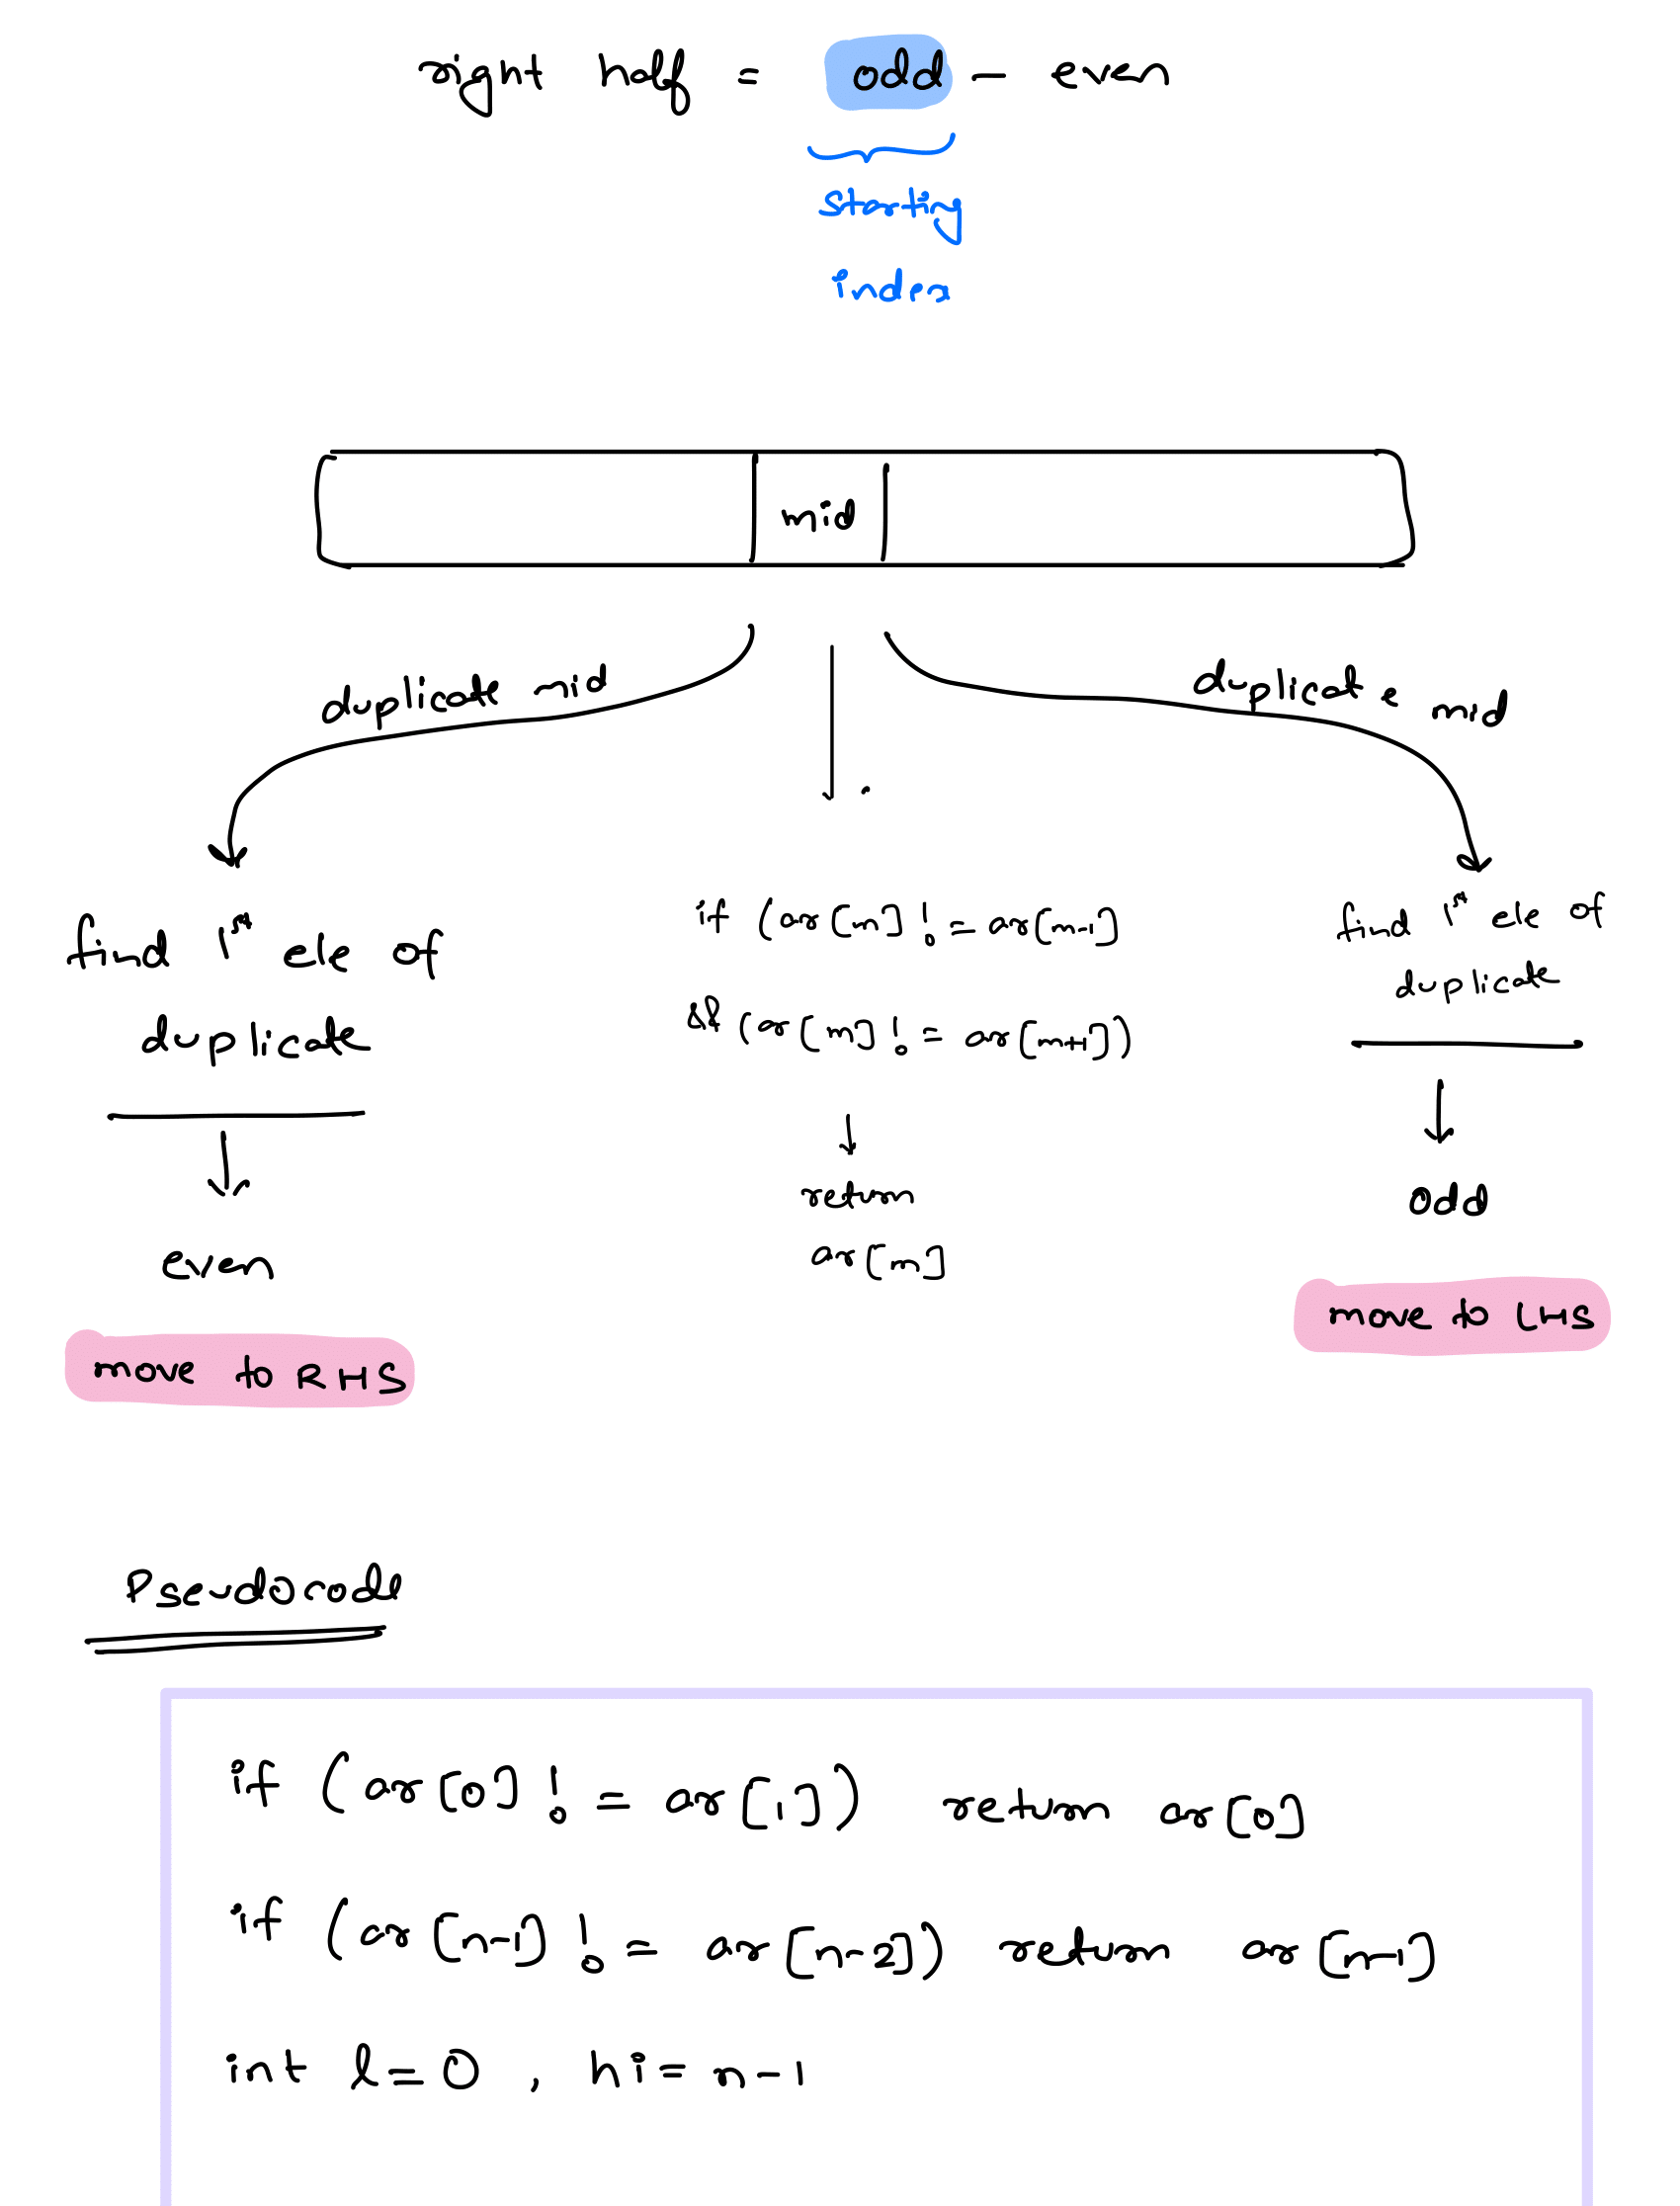 right half = odd - even
starting
index
mid
duplicate mid
duplicate mid
find 1st ele of
duplicate
even
move to RHS
if (ar[m] != ar[m-1]
&& (ar[m] != ar[m+1])
return
ar[m]
find 1st ele of
duplicate
odd
move to LHS
Pseudocode
if (ar[0] != ar[1]) return ar[0]
if (ar[n-1] != ar[n-2]) return ar[n-1]
int l=0 , hi= n-1